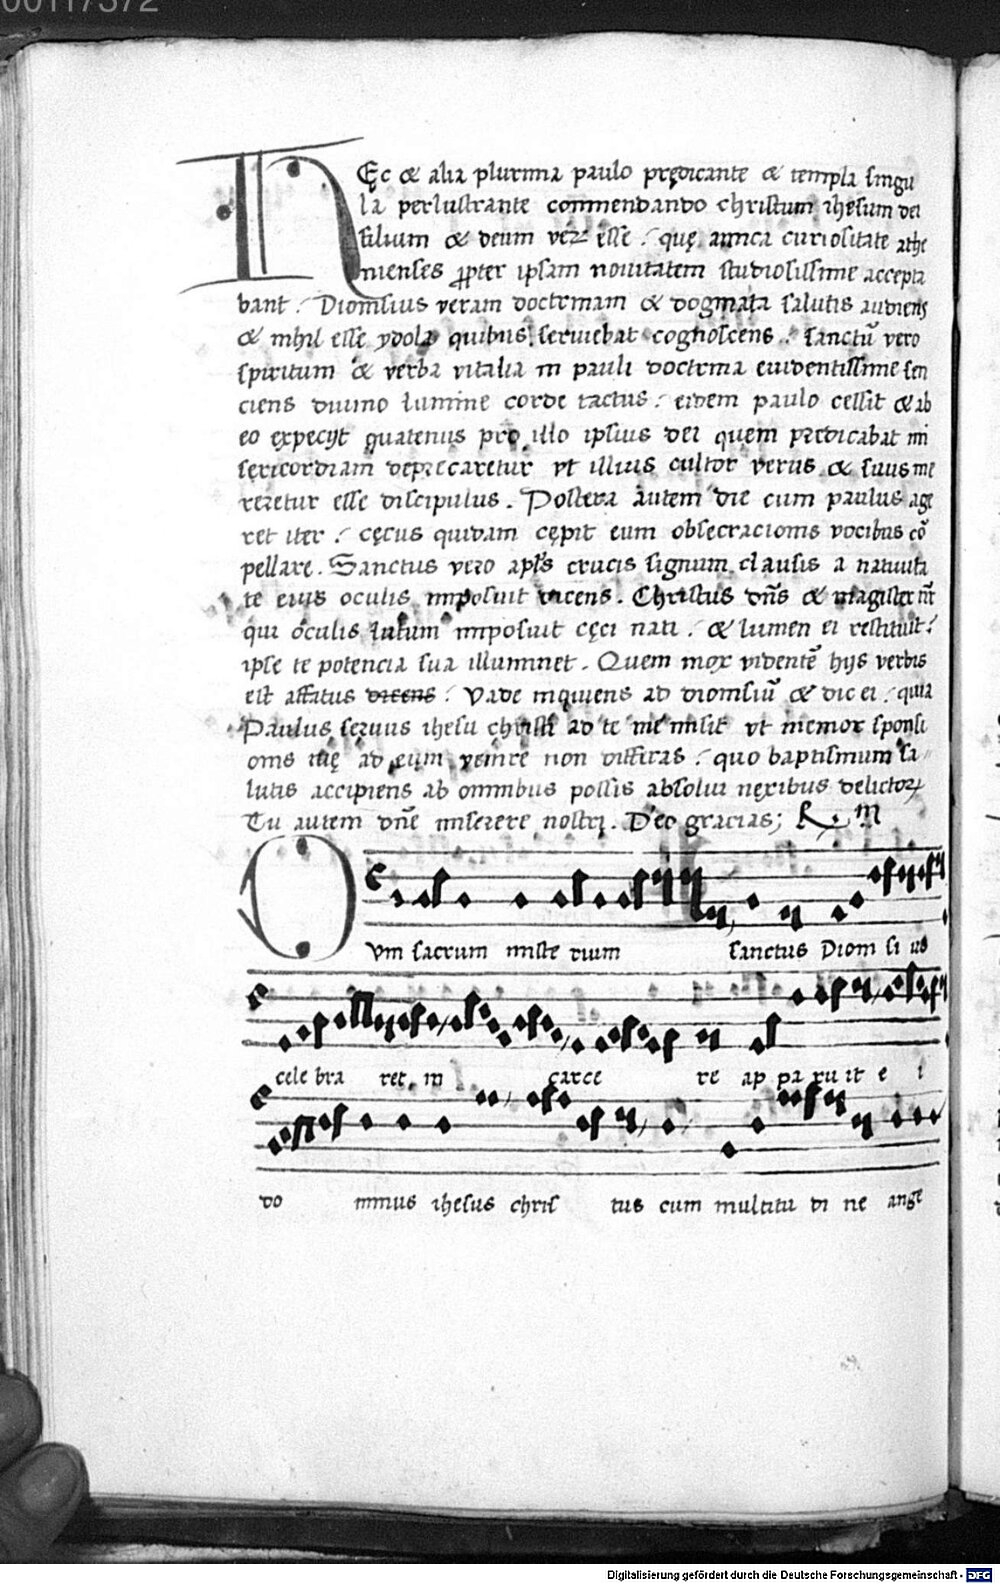 00117372
Hęc & alia plurima paulo prędicante & templa singu
la perlustrante commendando christum ihesum dei
filium & deum veꝝ esse : quę amica curiositate athe
nienses ꝓpter ipsam nouitatem studiosissime accepta
bant : Dionisius veram doctrinam & dogmata salutis audiens
& nihil esse ydola quibus seruiebat cognoscens : sanctū vero
spiritum & verba vitalia in pauli doctrina euidentissime sen
ciens diuino lumine corde tactus : eidem paulo cessit & ab
eo expecijt quatenus pro illo ipsius dei quem predicabat mi
sericordiam deprecaretur vt illius cultor verus & suus me
reretur esse discipulus . Postera autem die cum paulus age
ret iter : cęcus quidam cępit eum obsecracionis vocibus cō
pellare . Sanctus vero apl̄s crucis signum clausis a natiuita
te eius oculis imposuit dicens . Christus dn̄s & magister nr̄
qui oculis lutum imposuit cęci nati : & lumen ei restituit :
ipse te potencia sua illuminet . Quem mox videntē hijs verbis
est affatus dicens : Vade inquiens ad dionisiū & dic ei : quia
Paulus seruus ihesu christi ad te me misit vt memor sponsi
onis meę ad eum venire non differas : quo baptismum sa
lutis accipiens ab omnibus possis absolui nexibus delictoꝝ
Tu autem dn̄e miserere nostri . Deo gracias ; R. m
Oum sacrum miste rium sanctus Dioni si us
cele bra ret in carce re ap pa ru it e i
do minus ihesus chris tus cum multitu di ne ange
Digitalisierung gefördert durch die Deutsche Forschungsgemeinschaft - DFG